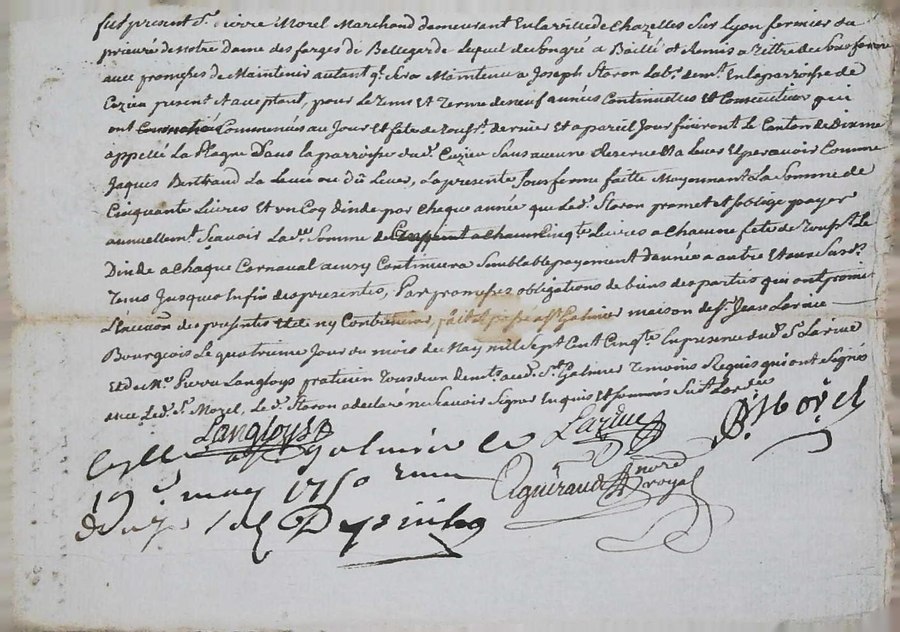 fut present Sr. pierre Morel Marchand demeurant En la ville de Chazelles Sur Lyon fermier du
prieuré de notre dame des farges de Bellegarde Lequel de Son gré a Baillé et Remis a Tiltre de Sous ferme
avec promesse de Maintenir autant ql. Sera Maintenu a Joseph Staron Labr. demt. En la parroisse de
Cuzieu present et acceptant, pour Le tems Et Terme de neuf années Continuelles Et Consecutives qui
ont Commencés au Jour Et fete de Toussts. dernier Et a pareil Jour finiront Le Canton de Dixme
appellé La Plagne Dans la parroisse dud. Cuzieu Sans aucune Reserve Et a Lever Et percevoir Comme
Jaques Bertrand La Levé ou dû Lever, La presente Sous ferme faitte Moyennant La Somme de
Cinquante Livres Et un Coq dinde par Chaque année que Led. Staron promet et s'oblige payer
annuellemt. Sçavoir Lade. Somme de Cinqte. Livres a Chacune fete de Toussts. Le
Dinde a Chaque Carnaval ainsy Continuera Semblable payement d'année a autre
Tems Jusques Enfin des presentes, Par promesses obligations de biens des parties qui ont promis
L'execution des presentes Et de ny Contrevenir, fait et passé a St Galmier maison de Sr. Jean Larüe
Bourgeois Le quatrieme Jour du mois de May mil Sept Cent Cinqte. En presence dud. Sr. Larüe
Et de Me. Pierre Langloys praticien Tous deux demts. aud. St. Galmier Temoins Requis qui ont Signés
avec Led. Sr. Morel, Led. Staron a declaré ne Scavoir Signer Enquis et Sommés
Langloys Larüe Morel
Cllé a St Galmier le
may 1750
Aguiraud nore royal